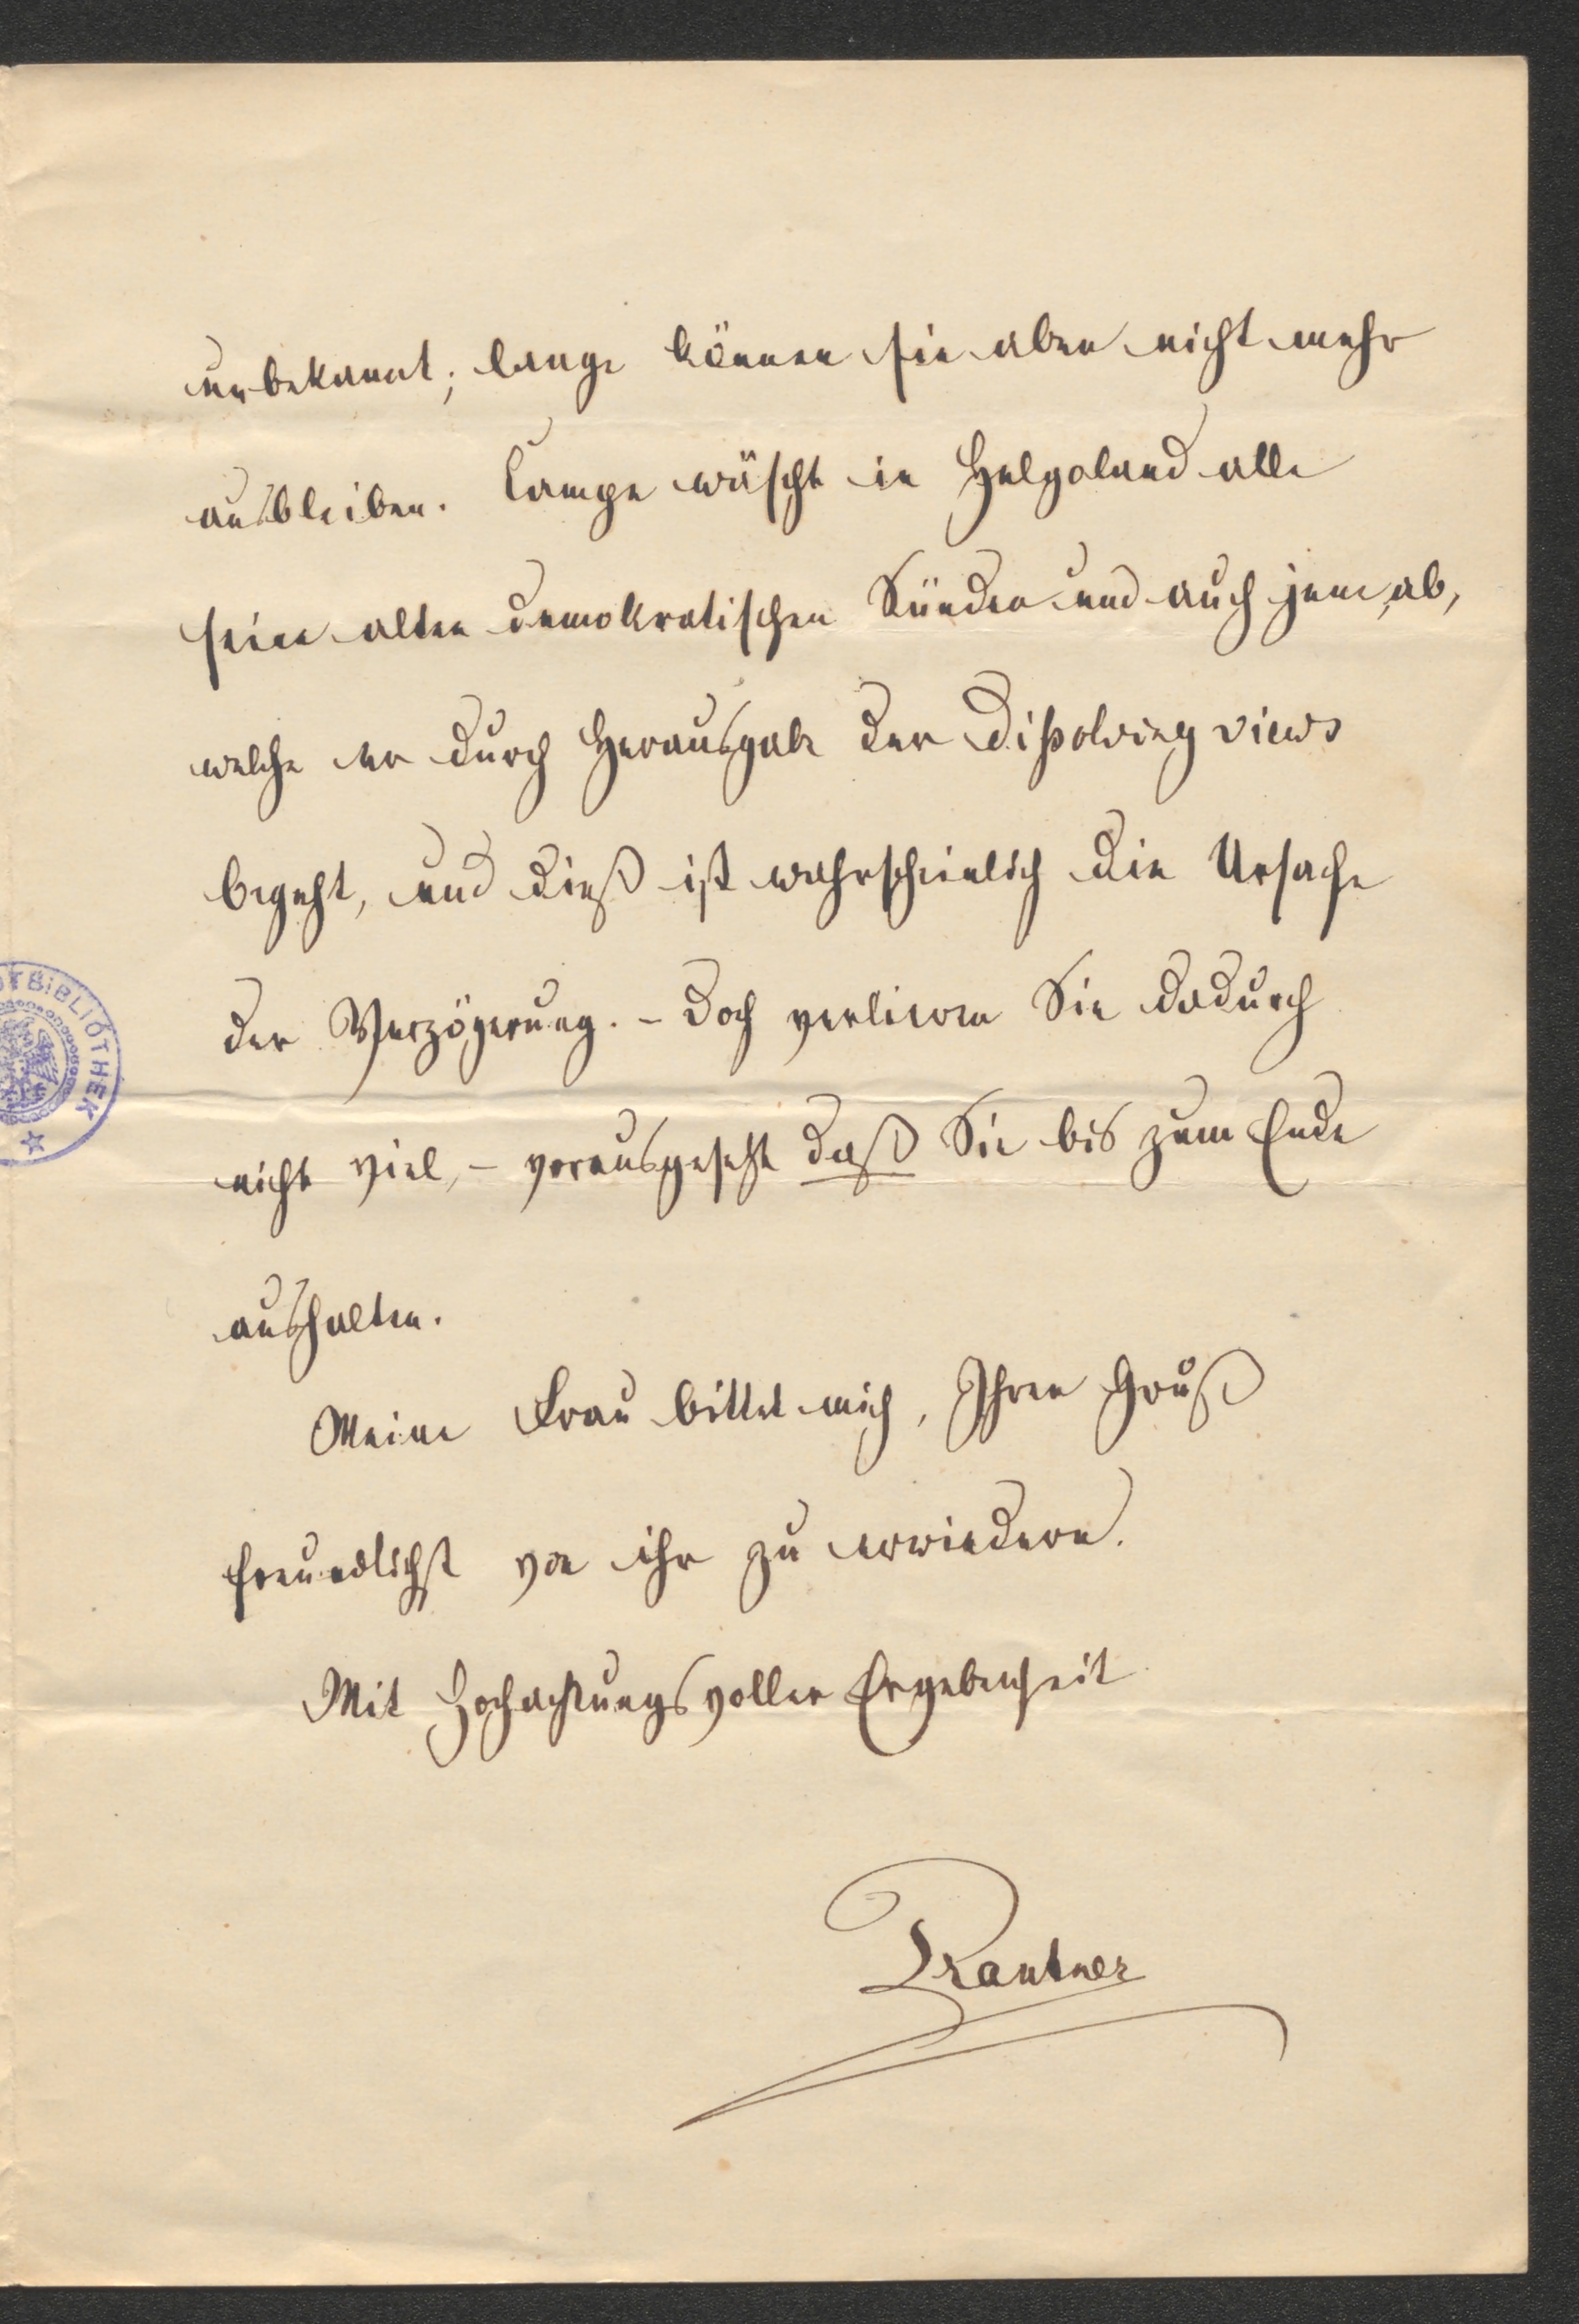 unbekannt; lange können sie aber nicht mehr
ausbleiben. Campe wäscht in Helgoland alle
seine alten demokratischen Sünden und auch jene ab,
welche er durch Herausgabe der Dißolving views
begeht, und dieß ist wahrscheinlich die Ursache
der Verzögerung. – Doch verlieren Sie dadurch
nicht viel, – vorausgesetzt daß Sie bis zum Ende
aushalten.
Meine Frau bittet mich, Ihren Gruß
freundlichst von ihr zu erwiedern.
Mit hochachtungsvoller Ergebenheit
Prantner
TBIBLIOTHEK